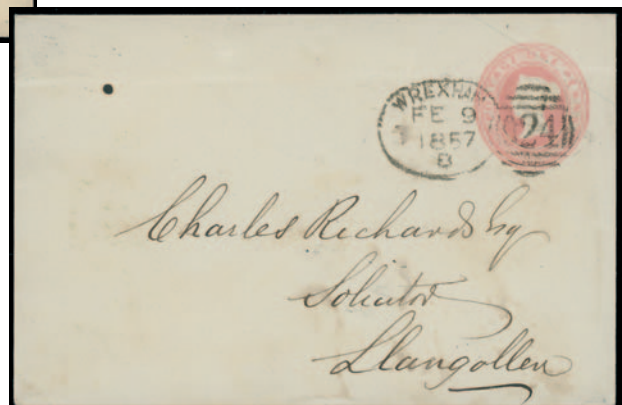 WREXHAM
FE 9
1857
B
924
Charles Richards Esq
Solicitor
Llangollen